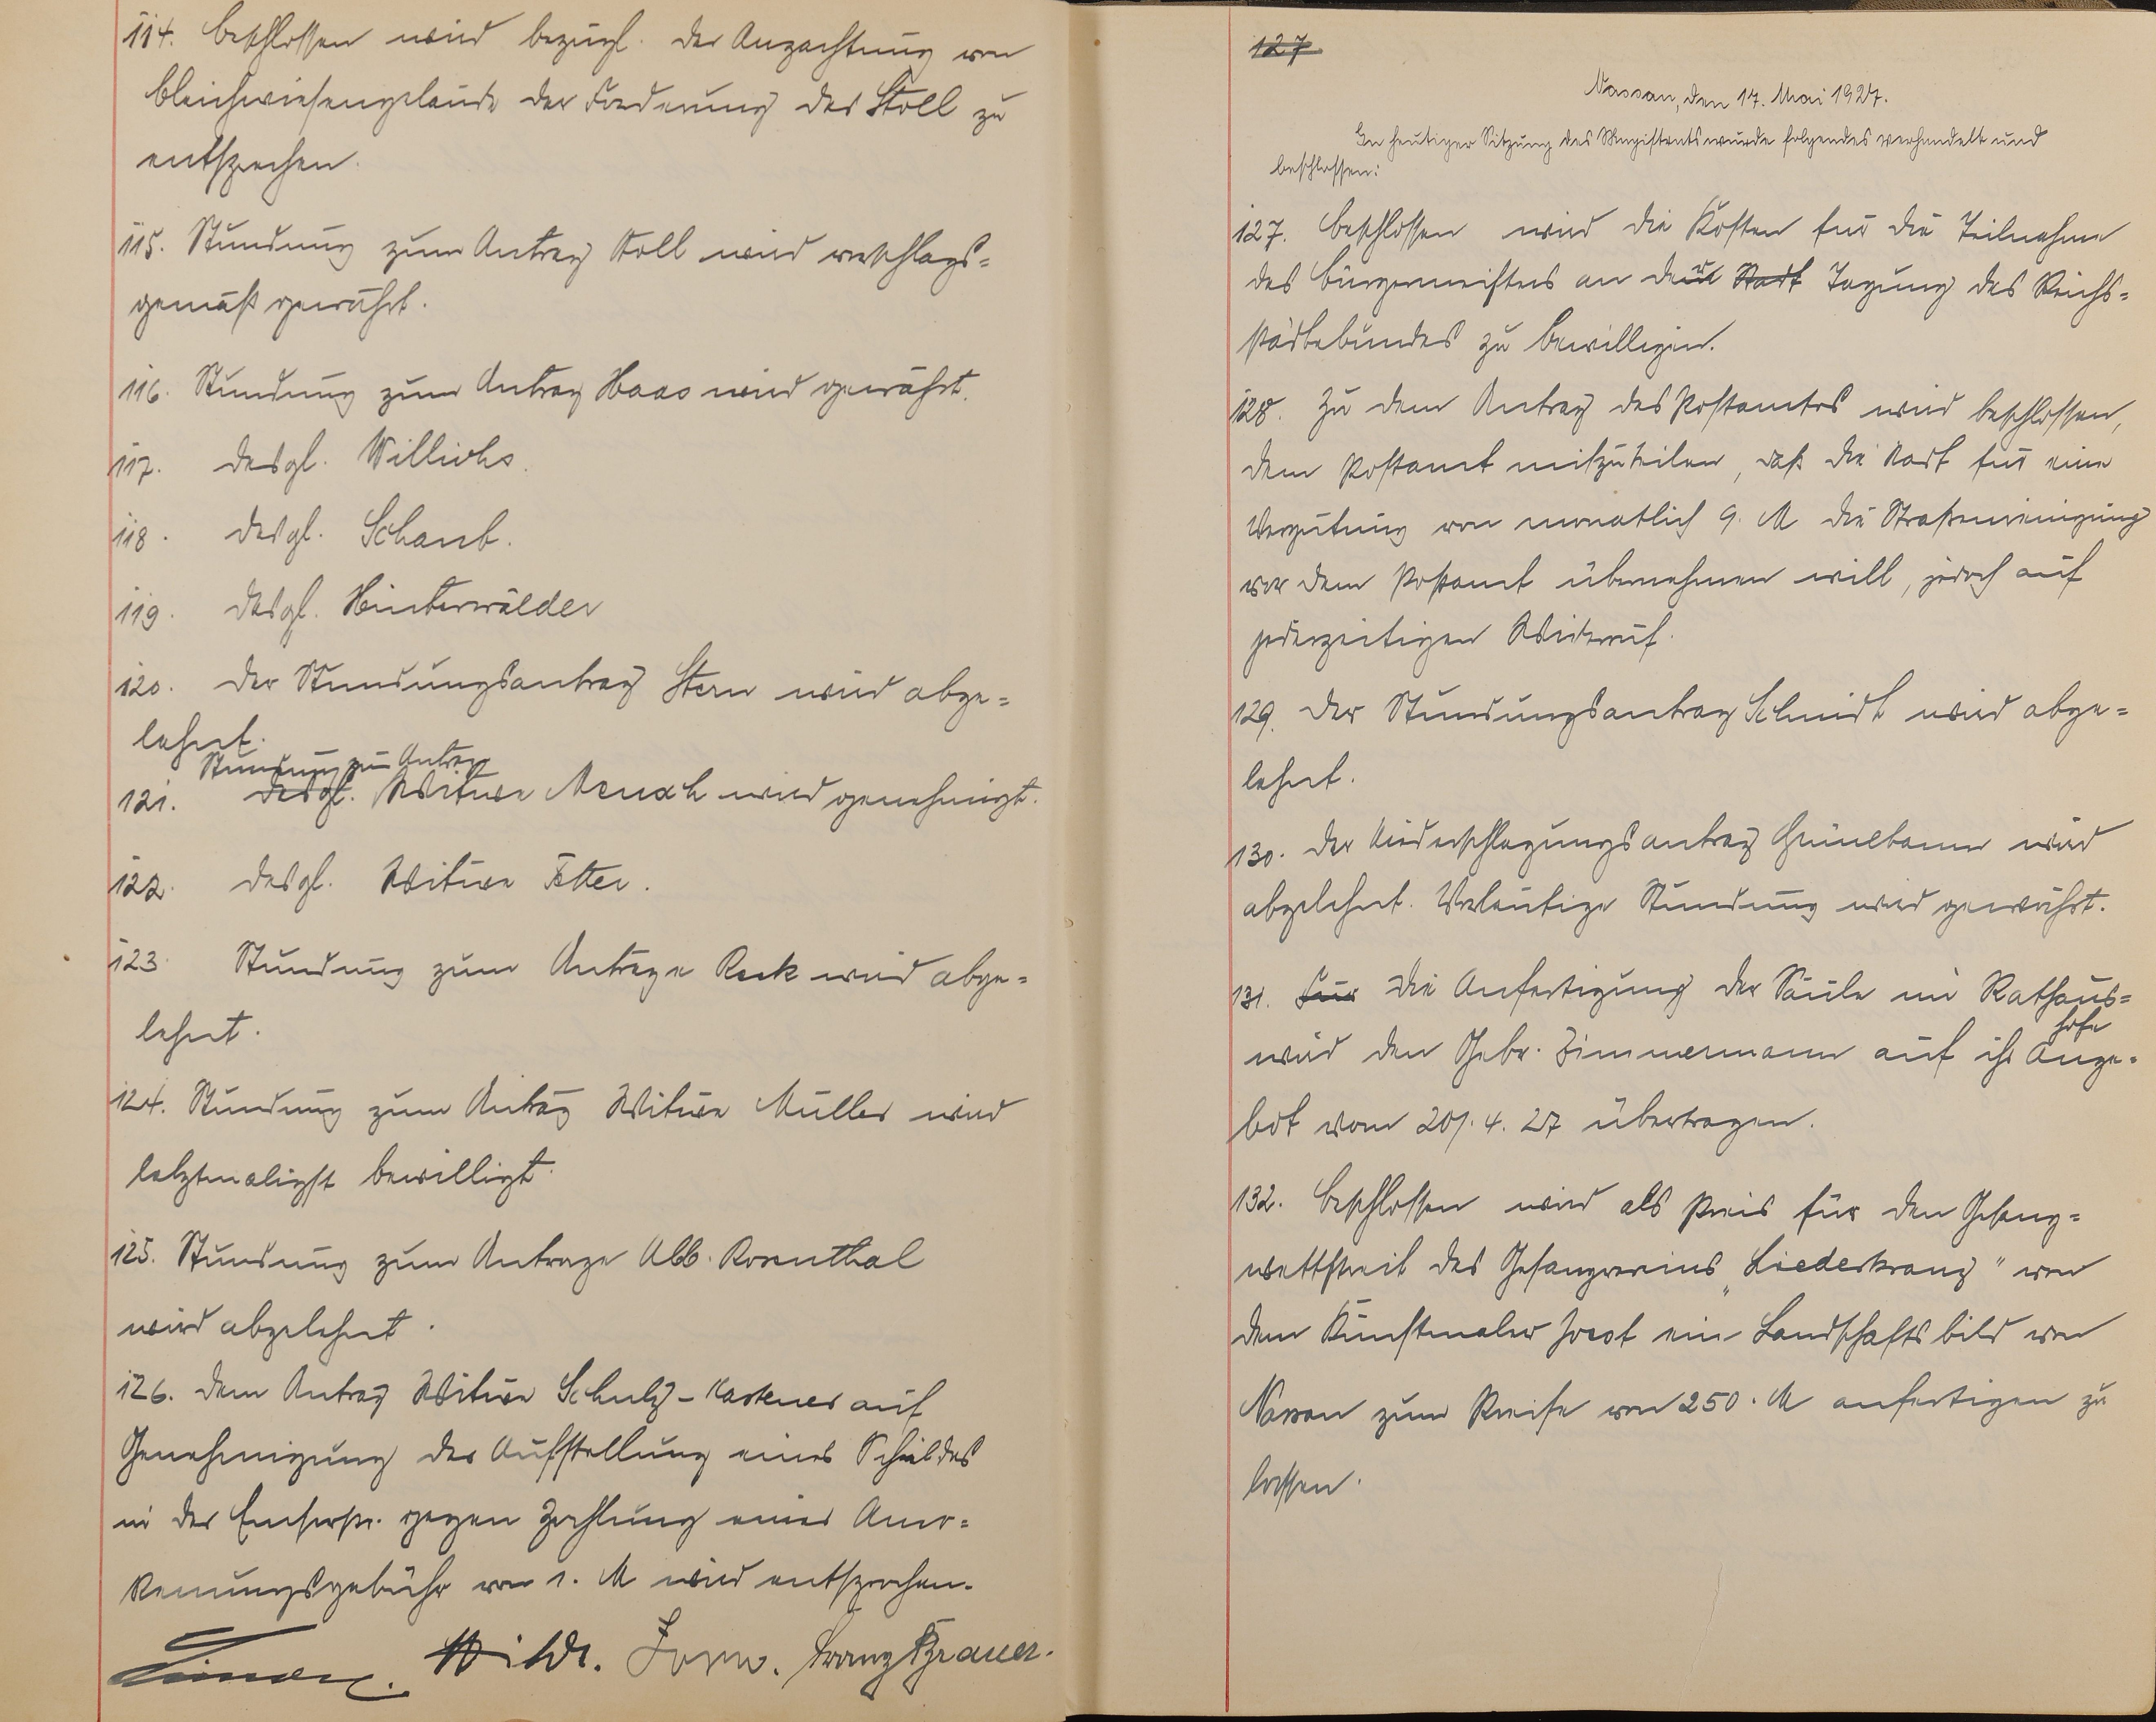 114. Beschlossen wird bezügl. der Anpachtung von
Bleichwiesengelände der Forderung des Stoll zu
entsprechen.
115. Stundung zum Antrag Stoll wird vorschlags=
gemäß gewährt.
116. Stundung zum Antrag Haas wird gewährt.
117. desgl. Willichs.
118. desgl. Schaub.
119. desgl. Hinterwälder
120. Der Stundungsantrag Stern wird abge=
lehnt.
Stundung zum Antrag
121. desgl. Witwe Mensch wird genehmigt.
122. desgl. Witwe Fetter.
123 Stundung zum Antrage Reck wird abge=
lehnt.
124. Stundung zum Antrag Witwe Müller wird
letztmaligst bewilligt.
125. Stundung zum Antrage Alb. Rosenthal
wird abgelehnt.
126. Dem Antrag Witwe Schulz-Kastener auf
Genehmigung der Aufstellung eines Schildes
in der Emserstr. gegen Zahlung einer Aner=
kennungsgebühr von 1. M wird entsprochen.
Wilh. Franz Brauer.
127
Nassau, den 17. Mai 1927.
In heutiger Sitzung des Magistrats wurde folgendes verhandelt und
beschlossen:
127. Beschlossen wird die Kosten für die Teilnahme
des Bürgermeisters an der Stadt Tagung des Reichs=
städtebundes zu bewilligen.
128. Zu dem Antrag des Postamtes wird beschlossen,
dem Postamt mitzuteilen, daß die Stadt für eine
Vergütung von monatlich 9. M die Straßenreinigung
vor dem Postamt übernehmen will, jedoch auf
jederzeitigen Widerruf.
129. Der Stundungsantrag Schmidt wird abge=
lehnt.
130. Der Niederschlagungsantrag Grünebaum wird
abgelehnt. Vorläufige Stundung wird gewährt.
131. Für Die Anfertigung der Säule im Rathaus=
hofe
wird den Gebr. Zimmermann auf ihr Ange=
bot vom 20/. 4. 27 übertragen.
132. Beschlossen wird als Preis für den Gesang=
wettstreit des Gesangvereins „Liederkranz" von
dem Kunstmaler Jrost ein Landschaftsbild von
Nassau zum Preise von 250. M anfertigen zu
lassen.